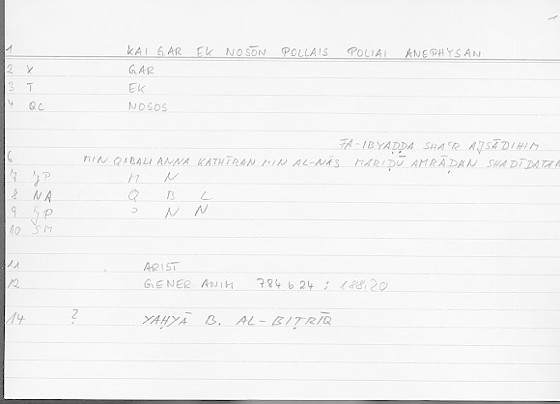 1 KAI GAR EK NOSŌN POLLAIS POLIAI ANEPHYSAN
2 X GAR
3 T EK
4 QC NOSOS
FA-IBYAḌḌA SHAʿR AJSĀDIHIM
6 MIN QIBALI ANNA KATHĪRAN MIN AL-NĀS MARIḌŪ AMRĀḌAN SHADĪDATAN
7 JP M N
8 NA Q B L
9 JP ʾ N N
10 SM
11 ARIST
12 GENER ANIM 784 b 24 ; 188.20
14 ? YAḤYĀ B. AL-BIṬRĪQ